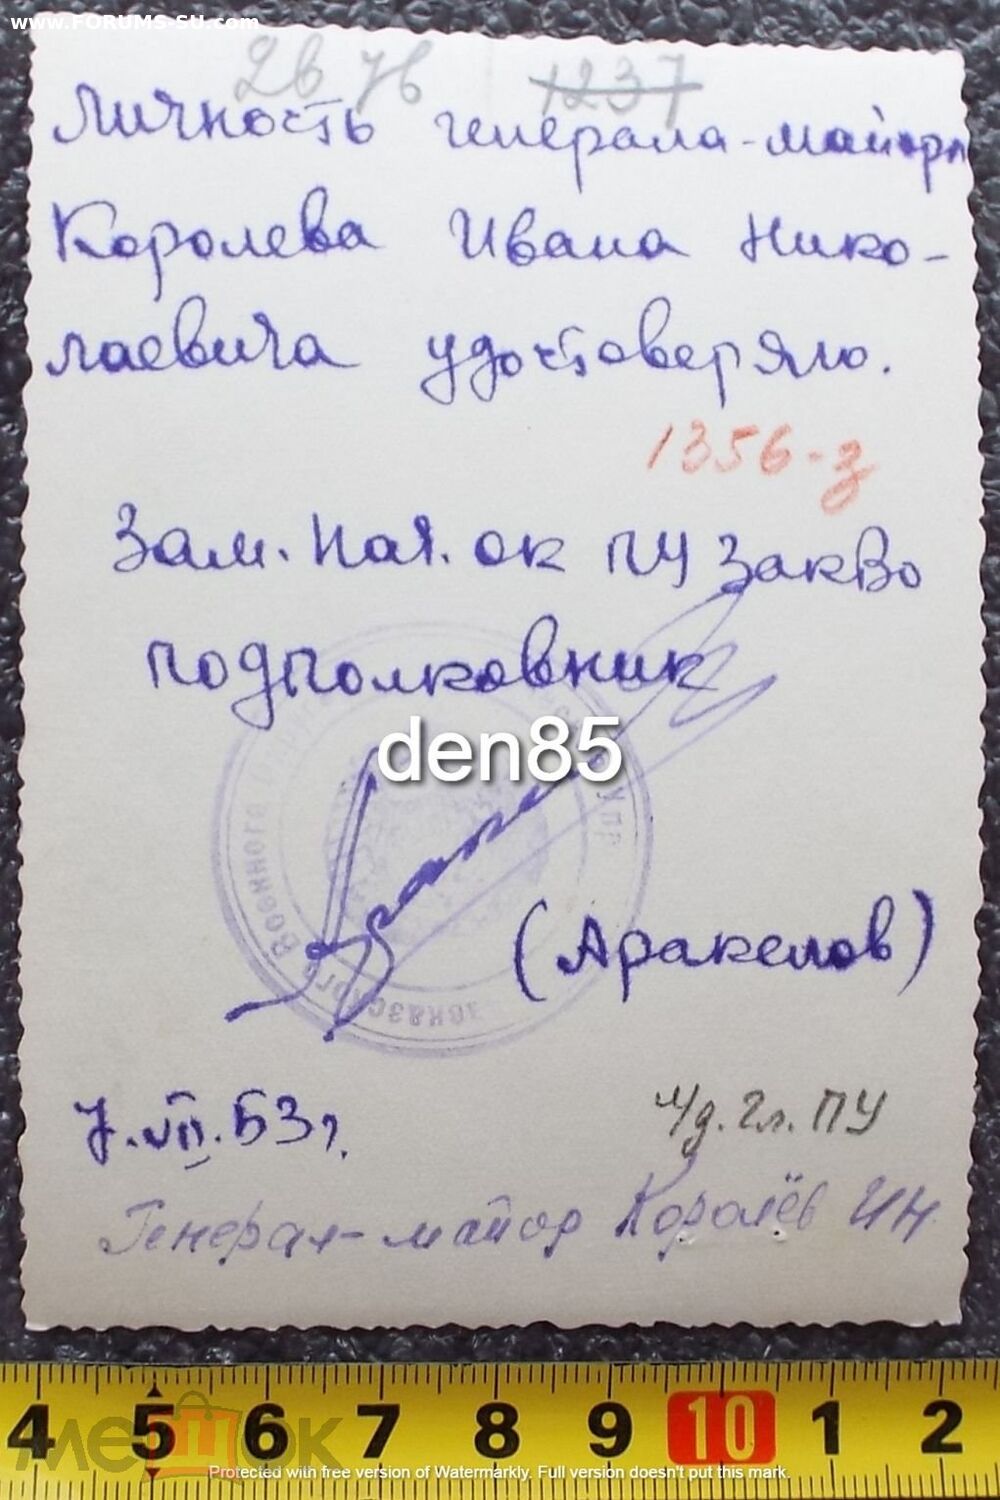 www.FORUMS-SU.com
1237
Личность генерала-майора
Королева Ивана Нико-
лаевича удостоверяю.
1356-з
Зам. Нач. ок ПУ ЗакВо
подполковник
den85
Военного
(Аракелов)
7.VII.53 г.
Гл. ПУ
Генерал-майор Королёв ИН.
4 5 6 7 8 9 10 1 2
мешок
Protected with free version of Watermarkly. Full version doesn't put this mark.